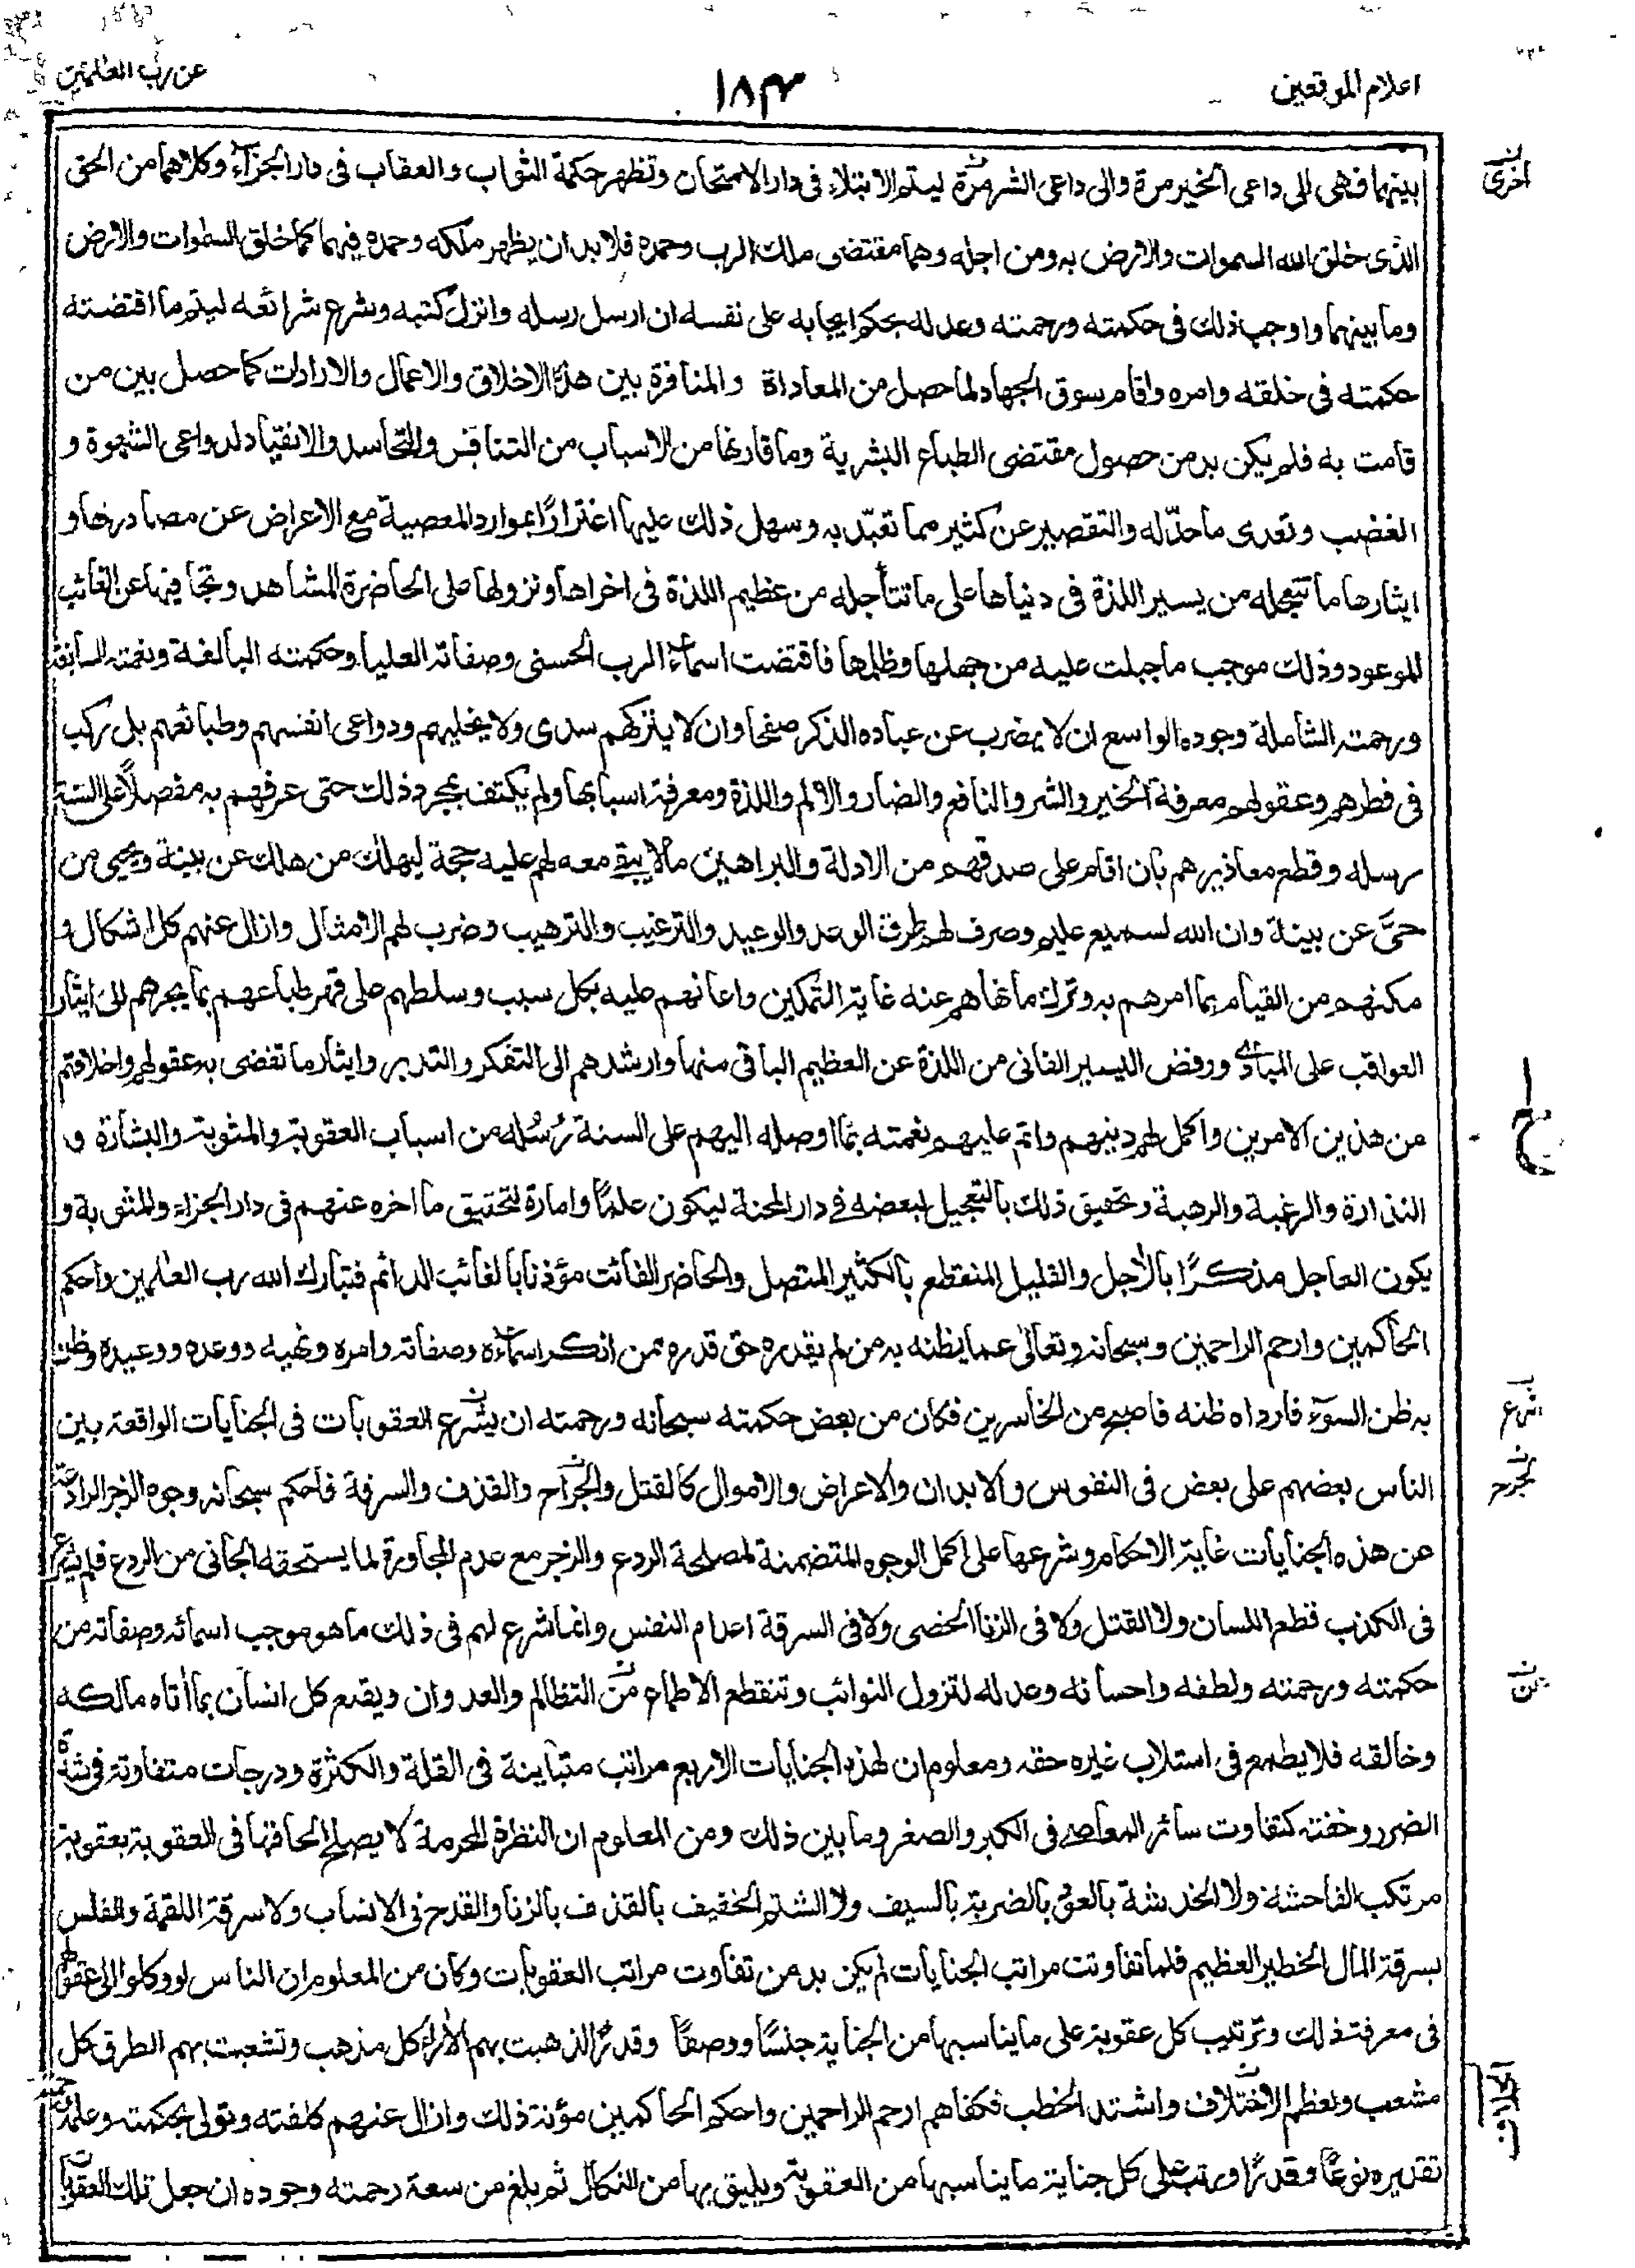 اعلام الموقعین
١٨٣
عن رب العٰلمین
بینهما فهی الی داعی الخیر مرة والی داعی الشر مرة لیتم الابتلاء فی دار الامتحان وتظهر حکمة الثواب والعقاب فی دار الجزاء وکلاهما من الحق
اخری
الذی خلق الله السموات والارض به ومن اجله وهما مقتضی ملك الرب وحمده فلا بد ان یظهر ملکه وحمده فیهما کما خلق السموات والارض
وما بینهما واوجب ذلك فی حکمته ورحمته وعدله بحکم ایجابه علی نفسه ان ارسل رسله وانزل کتبه وشرع شرائعه لیتم ما اقتضته
حکمته فی خلقه وامره واقام سوق الجهاد لما حصل من المعاداة والمنافرة بین هذه الاخلاق والاعمال والارادات کما حصل بین من
قامت به فلم یکن بد من حصول مقتضی الطباع البشریة وما قارنها من الاسباب من التنافس والتحاسد والانقیاد لدواعی الشهوة و
الغضب وتعدی ما حدّ له والتقصیر عن کثیر مما تعبّد به وسهل ذلك علیها اغترارًا بموارد المعصیة مع الاعراض عن مصادرها و
ایثارها ما تتعجله من یسیر اللذة فی دنیاها علی ما تتأجله من عظیم اللذة فی اخراها ونزولها علی الحاضرة المشاهد وتجافیها عن الغائب
الموعود وذلك موجب ما جبلت علیه من جهلها وظلمها فاقتضت اسماء الرب الحسنی وصفاته العلیا وحکمته البالغة ونعمته السابغة
ورحمته الشاملة وجوده الواسع ان لا یضرب عن عباده الذکر صفحا وان لا یترکهم سدی ولا یخلیهم ودواعی انفسهم وطبائعهم بل رکب
فی فطرهم وعقولهم معرفة الخیر والشر والنافع والضار والالم واللذة ومعرفة اسبابها ولم یکتف بمجرد ذلك حتی عرفهم به مفصلاً علی السنة
رسله وقطع معاذیرهم بان اقام علی صدقهم من الادلة والبراهین ما لا یبقی معه لهم علیه حجة لیهلك من هلك عن بینة ویحیی من
حیَّ عن بینة وان الله لسمیع علیم وصرف لهم طرق الوعد والوعید والترغیب والترهیب وضرب لهم الامثال وازال عنهم کل اشکال و
مکنهم من القیام بما امرهم به وترك ما نهاهم عنه غایة التمکین واعانهم علیه بکل سبب وسلطهم علی قهر طباعهم بما یجرهم الی ایثار
العواقب علی المبادی ورفض الیسیر الفانی من اللذة عن العظیم الباقی منها وارشدهم الی التفکر والتدبر وایثار ما تقضی به عقولهم واخلاقهم
من هذین الامرین واکمل لهم دینهم واتم علیهم نعمته بما اوصله الیهم علی السنة رُسُله من اسباب العقوبة والمثوبة والبشارة و
النذارة والرغبة والرهبة وتحقیق ذلك بالتعجیل لبعضه فی دار المحنة لیکون علمًا وامارة لتحقیق ما اخره عنهم فی دار الجزاء والمثوبة و
یکون العاجل مذکرًا بالاٰجل والقلیل المنقطع بالکثیر المتصل والحاضر الفائت مؤذنا بالغائب الدائم فتبارك الله رب العٰلمین واحکم
الحاکمین وارحم الراحمین وسبحانه وتعالی عما یظنه به من لم یقدره حق قدره ممن انکر اسماءه وصفاته وامره ونهیه ووعده ووعیده وظن
به ظن السوء فارداه ظنه فاصبح من الخاسرین فکان من بعض حکمته سبحانه ورحمته ان یشرع العقوبات فی الجنایات الواقعة بین
شرع
الناس بعضهم علی بعض فی النفوس والابدان والاعراض والاموال کالقتل والجراح والقذف والسرقة فاحکم سبحانه وجوه الزجر الرادعة
الجرح
عن هذه الجنایات غایة الاحکام وشرعها علی اکمل الوجوه المتضمنة لمصلحة الردع والزجر مع عدم المجاوزة لما یستحقه الجانی من الردع فلم یشرع
فی الکذب قطع اللسان ولا القتل ولا فی الزنا الخصی ولا فی السرقة اعدام النفس وانما شرع لهم فی ذلك ما هو موجب اسمائه وصفاته من
حکمته ورحمته ولطفه واحسانه وعدله لتزول النوائب وتنقطع الاطماع من التظالم والعدوان ویقنع کل انسان بما اٰتاه مالکه
عن
وخالقه فلا یطمع فی استلاب غیره حقه ومعلوم ان لهذه الجنایات الاربع مراتب متباینة فی القلة والکثرة ودرجات متفاوتة فی شدة
الضرر وخفته کتفاوت سائر المعاصی فی الکبر والصغر وما بین ذلك ومن المعلوم ان النظرة المحرمة لا یصلح الحاقها فی العقوبة بعقوبة
مرتکب الفاحشة ولا الخدشة بالعود بالضربة بالسیف ولا الشتم الخفیف بالقذف بالزنا والقدح فی الانساب ولا سرقة اللقمة والفلس
بسرقة المال الخطیر العظیم فلما تفاوتت مراتب الجنایات لم یکن بد من تفاوت مراتب العقوبات وکان من المعلوم ان الناس لو وکلوا الی عقولهم
فی معرفة ذلك وترتیب کل عقوبة علی ما یناسبها من الجنایة جنسًا ووصفًا وقدرًا لذهبت بهم الاٰراء کل مذهب وتشعبت بهم الطرق کل
مشعب ولعظم الاختلاف واشتد الخطب فکفاهم ارحم الراحمین واحکم الحاکمین مؤنة ذلك وازال عنهم کلفته وتولی بحکمته وعلمه
تقدیره نوعًا وقدرًا ورتب علی کل جنایة ما یناسبها من العقوبة ویلیق بها من النکال ثم بلغ من سعة رحمته وجوده ان جعل تلك العقوبات